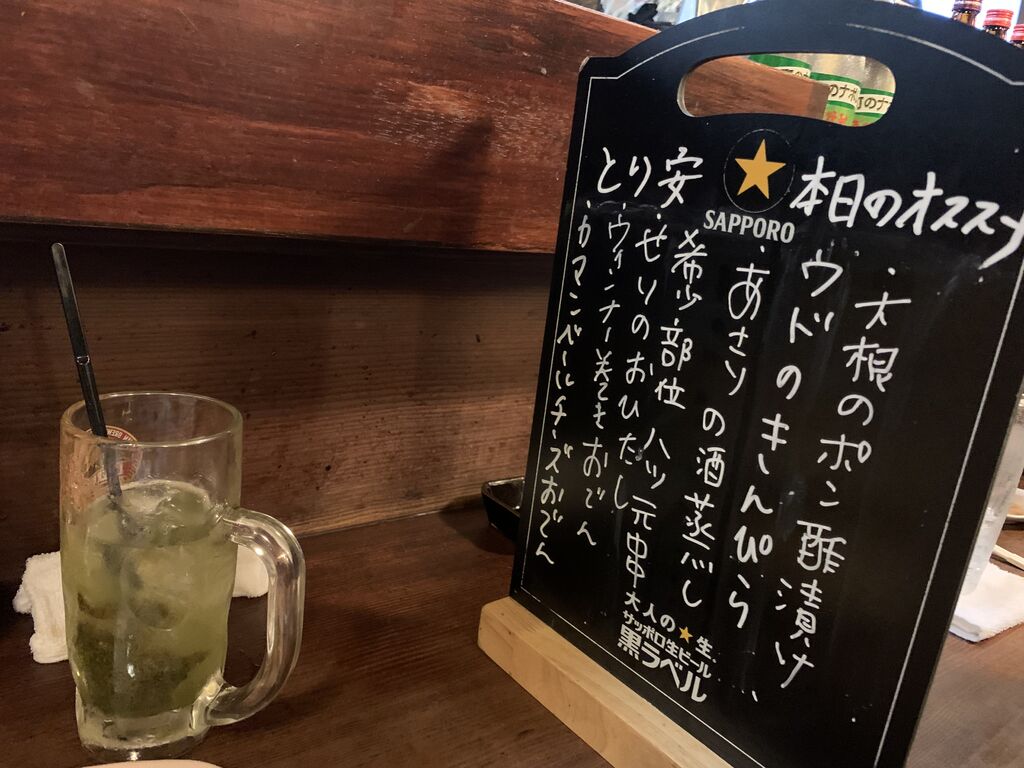 本日のオススメ
・大根のポン酢漬け
ウドのきんぴら
・あさりの酒蒸し
希少部位 ハツ元串
・せりのおひたし
・ウインナー巻てきおでん
・カマンベールチーズおでん
とり安
SAPPORO
大人の★生、
サッポロ生ビール
黒ラベル
のナポ
町のナポ